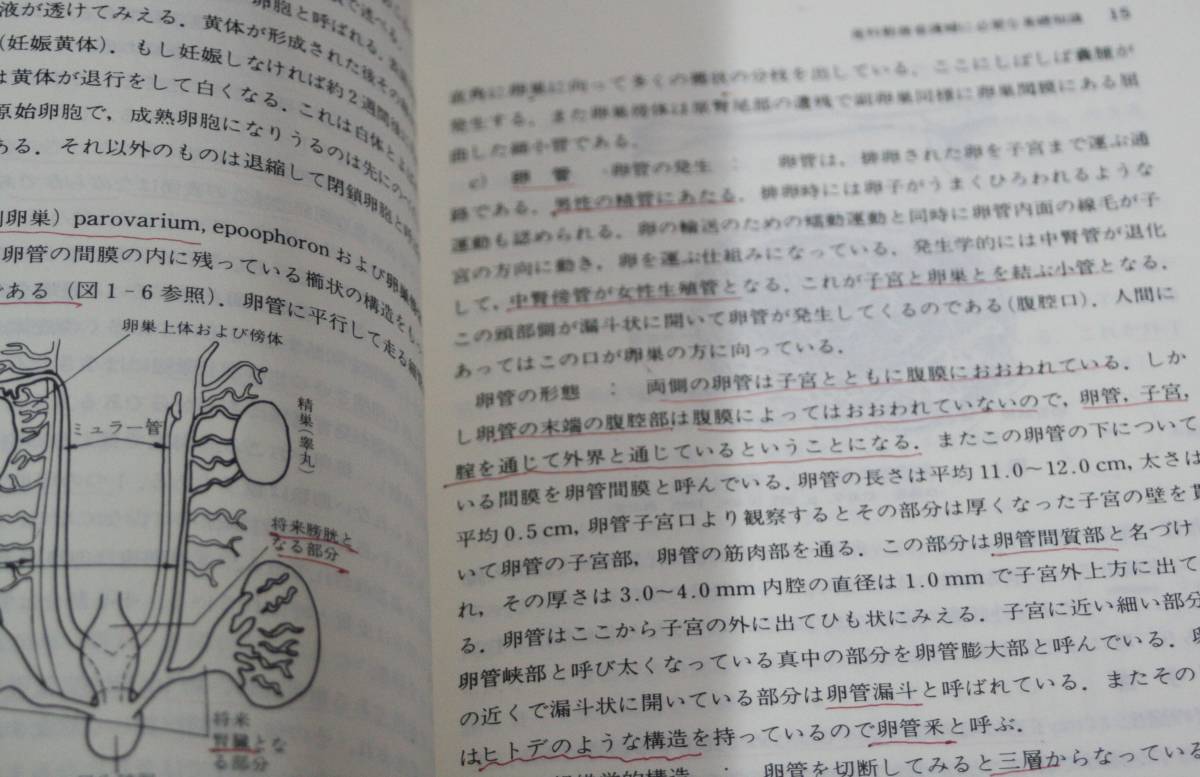 液が透けてみえる．黄体が形成された後
(妊娠黄体)．もし妊娠しなければ約２週間
は黄体が退行をして白くなる．これは白体と
原始卵胞で，成熟卵胞になりうるのは先にの
ある．それ以外のものは退縮して閉鎖卵胞と
副卵巣）parovarium, epoophoron および卵巣
卵管の間膜の内に残っている櫛状の構造をも
である（図1-6参照)．卵管に平行して走る
卵巣上体および傍体
ミュラー管
精巣(睾丸)
将来膀胱と
なる部分
将来
腎臓とな
る部分
15
直角に卵巣に向って多くの櫛状の分枝を出している．ここにしばしば嚢腫が
発生する．また卵巣傍体は原腎尾部の遺残で副卵巣同様に卵巣間膜にある屈
曲した細小管である．
c） 卵 管 卵管の発生 ： 卵管は，排卵された卵を子宮まで運ぶ通
路である．男性の精管にあたる．排卵時には卵子がうまくひろわれるような
運動も認められる．卵の輸送のための蠕動運動と同時に卵管内面の線毛が子
宮の方向に動き，卵を運ぶ仕組みになっている．発生学的には中腎管が退化
して，中腎傍管が女性生殖管となる．これが子宮と卵巣とを結ぶ小管となる．
この頭部側が漏斗状に開いて卵管が発生してくるのである（腹腔口)．人間に
あってはこの口が卵巣の方に向っている．
卵管の形態 ： 両側の卵管は子宮とともに腹膜におおわれている．しか
し卵管の末端の腹腔部は腹膜によってはおおわれていないので，卵管，子宮，
腟を通じて外界と通じているということになる．またこの卵管の下について
いる間膜を卵管間膜と呼んでいる．卵管の長さは平均11.0〜12.0 cm, 太さは
平均0.5 cm, 卵管子宮口より観察するとその部分は厚くなった子宮の壁を貫
いて卵管の子宮部，卵管の筋肉部を通る．この部分は卵管間質部と名づけ
れ，その厚さは3.0〜4.0 mm 内腔の直径は1.0 mm で子宮外上方に出て
る．卵管はここから子宮の外に出てひも状にみえる．子宮に近い細い部分
卵管峡部と呼び太くなっている真中の部分を卵管膨大部と呼んでいる．
の近くで漏斗状に開いている部分は卵管漏斗と呼ばれている．またその
はヒトデのような構造を持っているので卵管采と呼ぶ．
卵管を切断してみると三層からなっている